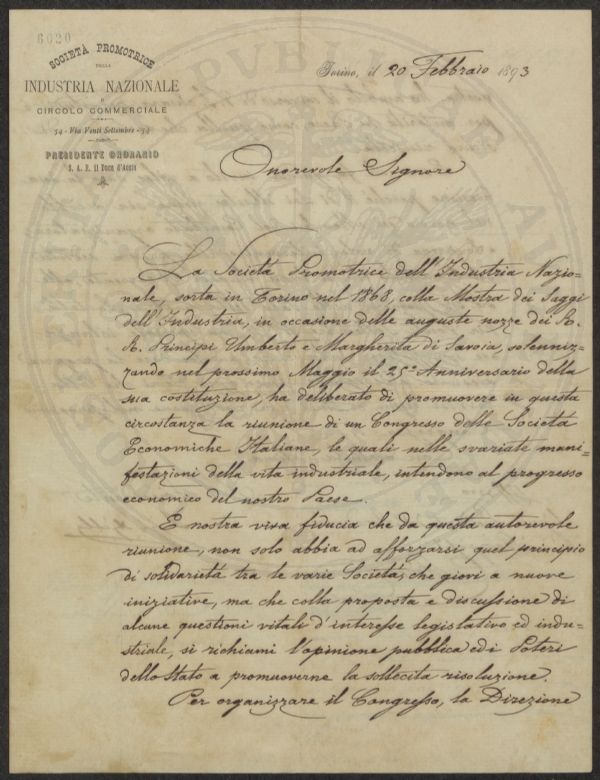 6020
SOCIETÀ PROMOTRICE
DELLA
INDUSTRIA NAZIONALE
E
CIRCOLO COMMERCIALE
54 - Via Venti Settembre - 54
PRESIDENTE ONORARIO
S. A. R. Il Duca d'Aosta
Torino, il 20 Febbraio 1893
Onorevole Signore
La Società Promotrice dell'Industria Nazio-
nale, sorta in Torino nel 1868, colla Mostra dei Saggi
dell'Industria, in occasione delle auguste nozze dei R.
R. Principi Umberto e Margherita di Savoia, solenniz-
zando nel prossimo Maggio il 25º Anniversario della
sua costituzione, ha deliberato di promuovere in questa
circostanza la riunione di un Congresso delle Società
Economiche Italiane, le quali nelle svariate mani=
festazioni della vita industriale, intendono al progresso
economico del nostro Paese.
È nostra viva fiducia che da questa autorevole
riunione, non solo abbia ad afforzarsi quel principio
di solidarietà tra le varie Società, che giovi a nuove
iniziative, ma che colla proposta e discussione di
alcune questioni vitali d'interesse legislativo ed indu-
striale, si richiami l'opinione pubblica ed i Poteri
dello Stato a promuoverne la sollecita risoluzione.
Per organizzare il Congresso, la Direzione